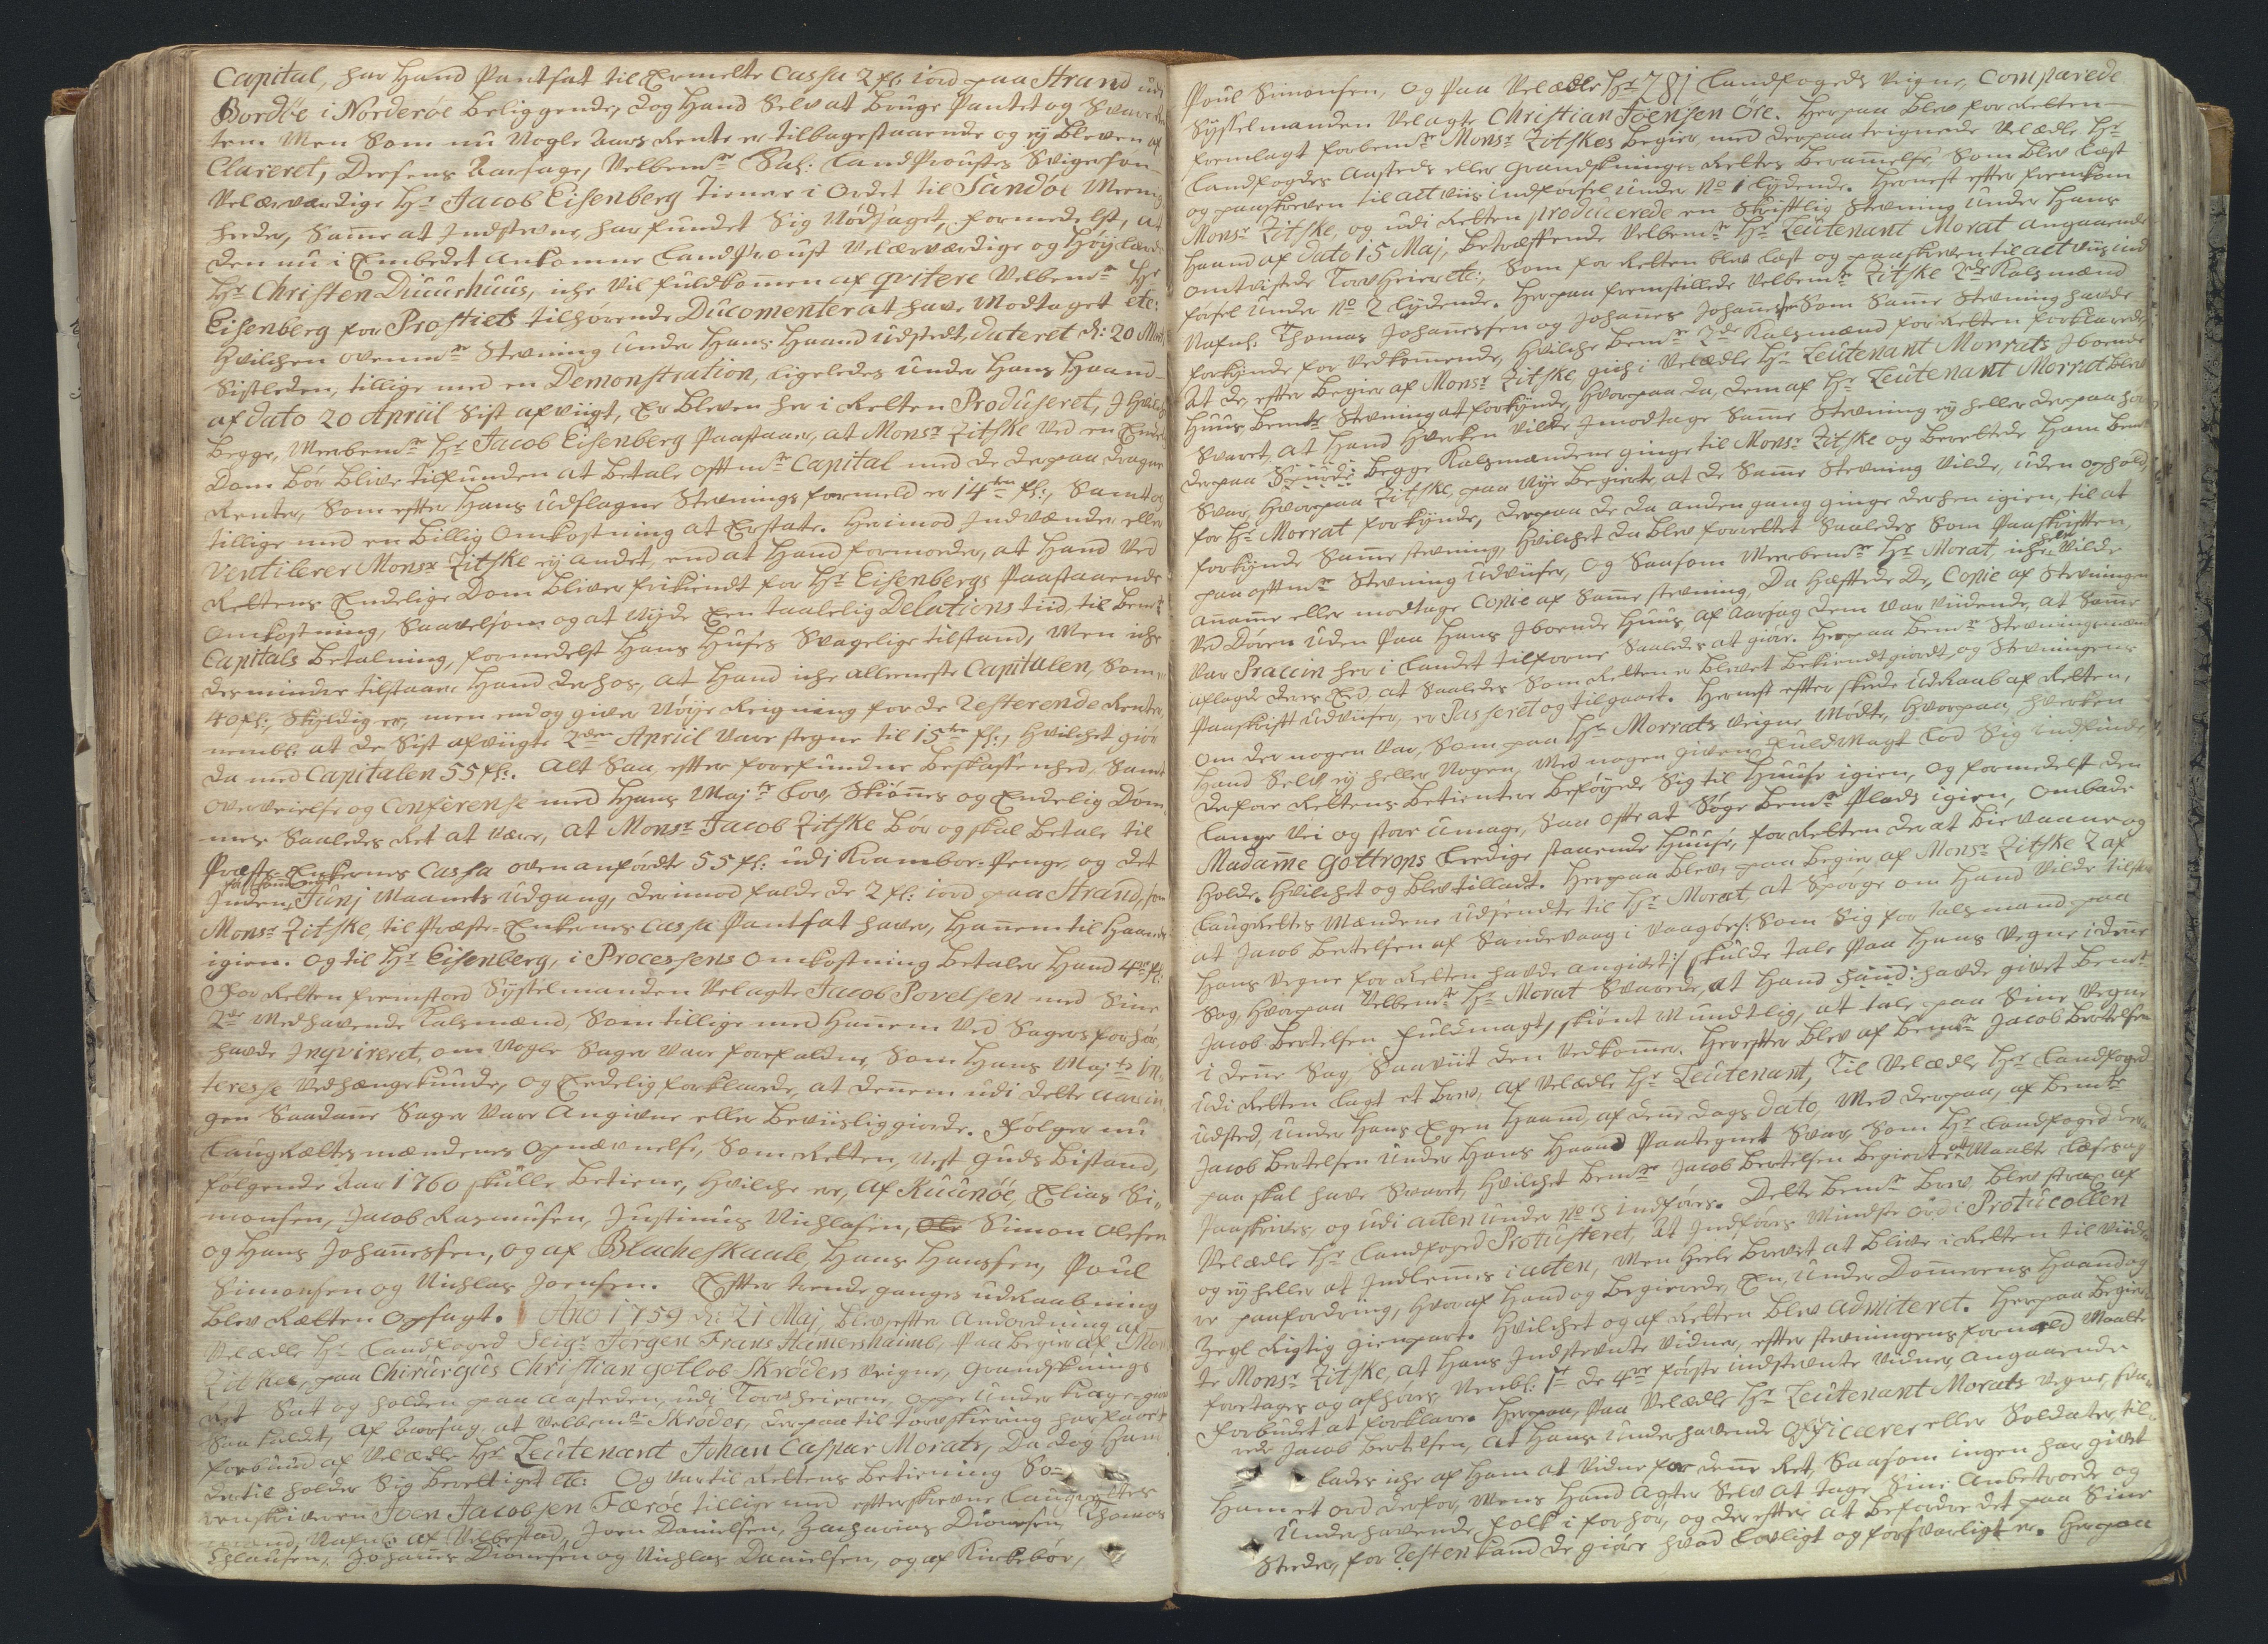 Capital, har Hand Pantsat til Ermelte Cassa 2 fl: iord paa Strand udi
Bordöe i Norderöe beliggende, dog Hand Selv at bruge Pantet og Svare
ten. Men Som nu Nogle Aars Rente er tilbagestaaende og ey bleven af
Clareret, Dessens Aarsage, Velbemte Sal: LandProustes Svigersön
Velærværdige Hr Jacob Eisenberg Tiener i Ordet til Sandöe Menig
heder, Samme at Indstevne, har fundet Sig Nödsaget, formedelst, at
den nu i Embedet Ankomne LandProust Velærværdige og Höylærde
Hr Christen Duuushuus, iche vil fuldkommen af qvitere Velbemte Hr
Eisenberg for Prostiets tilhörende Documenter at have Modtaget etc:
Hvilchen ovenmte Stevning under Hans Haand udstedt, dateret d: 20 Marti
Sistleden, tillige med en Demonstration, ligeledes under Hans Haand
af dato 20 Apriil Sist afvigt, er bleven her i Retten Produseret, I Hvilche
begge, Meerbemte Hr Jacob Eisenberg Paastaaer, at Monsr Zitske Ved en Endel:
Dom bör blive tilfunden at betale offtmte Capital med de derpaa dragne
Renter, Som efter Hans udslagne Stevnings formeld er 14ten fl:, Samt
tillige med en billig Omkostning at Erstate. Herimod Indvænder eller
Ventilerer Monsr Zitske ey andet, end at Hand formoder, at Hand Ved
Rettens Endelige Dom bliver frikiendt for Hr Eisenbergs Paastaaende
Omkostning, Saavelsom og at Nyde Een taalelig Delations tiid, til bemte
Capitals betalning, formedelst Hans Huses Svagelige tilstand, Men iche
desminder tilstaaer Hand derhos, at Hand iche alleeneste Capitalen, Som
40 fl:, Skyldig er, men endog giver Nöye Reigning for de resterende Renter
nembl: at de Sist afvigte 2den Apriil vare stegne til 15ten fl:, Hvilchet giör
da med Capitalen 55 fl:. Alt Saa, efter forefundne beskaffenhed, Samt
overveielse og Conferense med Hans Majts Lov, Skiönnes og Endelig Döm
mes Saaledes Ret at være, at Monsr Jacob Zitske bör og skal betale til
Præste-Enkernes Cassa ovenanfördte 55 fl: udi Krambor-Penge, og det
Inden Junj Maanets udgang, derimod falde de 2 fl: iord paa Strand, som
Monsr Zitske til Præste-Enkernes Cassa Pantsat haver, Hannem til Haande
igien. Og til Hr Eisenberg, i Processens Omkostning betaler Hand 4re fl:
For Retten fremstod Sysselmanden Velagte Jacob Povelsen med Sine
2de Medhavende Kalsmænd, Som tillige med Hannem Ved Sagers forhör,
havde Inqvireret, om Nogle Sager Vare forefaldne, Som Hans Majts In-
teresse Vedhængekunde, og Endelig forklarede, at dennem udi dette Aar in-
gen Saadanne Sager Vare Angivne eller beviisliggiorde. Fölger nu
Laugrættes mændenes Opnævnelse, Som Retten, Nest Guds bistand,
fölgende Aar 1760 skulle betiene, Hvilche er, af Kuunöe, Elias Si-
monsen, Jacob Rasmusen, Justinus Nichlasen, Simon Olesen
og Hans Johannessen, og af Blacheskaale, Hans Hanssen, Poul
Simonsen og Nichlas Joensen. Efter trende ganges udRaabning
blev Rætten Opsagt. Ano 1759 d: 21 Maj, blev efter Anordning af
Velædle Hr Landfoged Seigr Jörgen Frans Hamershaimb, Paa begier af Mon
Zitske, paa Chirurgus Christian Gotlob Skröders veigne, Grandsknings
Ret Sat og holden paa Aasteden, udi Torvheierne,
Saa kaldt, Af Aarsag, at velbemte Skröder, derpaa til Torvskiæring har faaet
forbuud af Velædle Hr Leutenant Johan Caspar Morats, Da dog Hand
dertil holder Sig berettiget etc: Og var til Rettens betiening So-
renskriveren Joen Jacobsen Færöe tillige med efterskrevne Laugrettes
mænd, Nafnl: af Velbestad, Joen Danielsen, Zacharias Dionesen, Thomas
Eslausen, Johannes Dionesen og Nichlas Danielsen, og af Kirkebör,
Poul Simonsen, og Paa Velædle Hr 781 Landfogeds Veigne, Comparede
Sysselmanden Velagte Christian Joensen Öre. Herpaa blev for Retten
fremlagt forbemte Monsr Zitskes begier, med derpaa teignede Velædle Hr
Landfogdes Aasteds eller Grandskninge-Rettes berammelse, Som blev læst
og paaskreven til act viis indförsel under No 1 lydende. Hernest efter fremkom
Monsr Zitske, og udi Retten producerede en Skriftlig Stevning under Hans
Haand af dato 15 Maj, betræffende Velbemte Hr Leutenant Morat angaaende
omtvistede Torv Heier etc:, Som for Retten blev læst og paaskreven til act viis ind
försel under No 2 lydende. Herpaa fremstillede Velbemte Zitske 2de Kalsmænd
Nafnl: Thomas Johannessen og Johannes Johannes: Som Samme Stevning havde
forkynde for Vedkommende, Hvilche bemte 2de Kalsmænd for Retten forklarede
At de, efter begier af Monsr Zitske gich i Velædle Hr Leutenant Morrats Iboende
Huus, bemte Stevning at forkynde, Hvorpaa da, dem af Hr Leutenant Morrat blev
Svaret, at Hand Hverken Vilde Imodtage Samme Stevning ey heller derpaa höre
derpaa begge Kalsmændene ginge til Monsr Zitske og berettede Ham bemte
Svar, Hvorpaa Zitske, paa Nye begierte, at de Samme Stevning Vilde, uden ophold
for Hr Morrat forkynde, derpaa de da anden gang ginge derhen igien, til at
forkynde Samme stevning, Hvilchet da blev forrettet Saaledes Som Paaskriften,
paa offtmte Stevning udviiser, og Saasom Meerbemte Hr Morat iche Vilde
annamme eller modtage Copie af Samme stevning, Da Hæftede De, Copie af Stevningen
Ved Dören uden Paa Hans Iboende Huus, af Aarsag dem var vidende, at Samme
var Praccin her i Landet tilforne Saaledes at giöre. Herpaa bemte Stevningsmænd
aflagde deres Eed at Saaledes Som Retten er blevet bekiendtgiordt, og Stevningens
Paaskrift udviiser, er Passeret og tilgaaet. Hernest efter skeede udRaab af Retten,
om der nogen var, Som paa Hr Morrats veigne Mödte, Hvorpaa, Hverken
Hand Selv ey heller Nogen, Med nogen given fuldMagt lod Sig indfinde
derfore Rettens betientere beföyede Sig til Huuse igien, og formedelst den
lange Vei og store Umage, Saa offte at Söge bemte Plads igien, Ombade
Madamme Gottrops Leedige staaende Huuse, for Retten der at bievaane og
Holde. Hvilchet og blev tilladt. Herpaa bleve paa begier af Monsr Zitske 2 af
Laugrettes Mændene udsendte til Hr Morat, at Spörge om Hand Vilde tilstaae
at Jacob Bertelsen af Sandevaag i Vaagöe /: Som Sig for talsmand paa
Hans Vegne for Retten havde Angivet :/ skulde tale Paa Hans Vegne i denne
Sag, Hvorpaa Velbemte Hr Morat Svarede, at Hand havde givet bemte
Jacob Bertelsen fuldmagt, skiönt Mundtlig, at tale paa Sine Vegne
i denne Sag Saaviit den Vedkommer. Herefter blev af bemte Jacob Bertelsen
udi Retten lagt et brev, af Velædle Hr Leutenant, Til Velædle Hr Landfoged
udsted, under Hans Egen Haand, af denne dags dato, Med derpaa, af bemte
Jacob Bertelsen under Hans Haand Paateignet Svar Som Hr Landfoged der
paa skal have Svaret, Hvilchet bemte Jacob Bertelsen begierte at maatte læses og
Paaskrives, og udi acten under No 3 indföres. Dette bemte brev, blev strax af
Velædle Hr Landfoged Protusteret, at Indföres Mindste ord i Protucollen
og ey heller at Indlemmes i acten, Men Heele brevet at blive i Retten til viidere
re paafordring, Hvoraf Hand og begierede, En, under Dommerens Haand og
Zegl Rigtig gienpart. Hvilchet og af Retten blev admiteret. Herpaa begier
te Monsr Zitske, at Hans Indstevnte Vidner, efter stevningens formeld Maatte
foretages og afhöres, Nembl: 1st de 4re förste indstevnte Vidner, Angaaende
forbudet at forklare. Herpaa, Paa Velædle Hr Leutenant Morats Vegne, sva-
rede Jacob Bertelsen, at Hans Underhavende Officerer eller Soldater, til-
lades iche af Ham at Vidne for denne Ret, Saasom ingen har givet
Ham et ord derfor, Mens Hand Agter Selv at tage Sine Anbetroede og
Underhavende Folk i forhör, og derefter at befordre det paa Sine
Steder, for Resten kand de giöre hvad lovligt og forsvarligt er. Herpaa